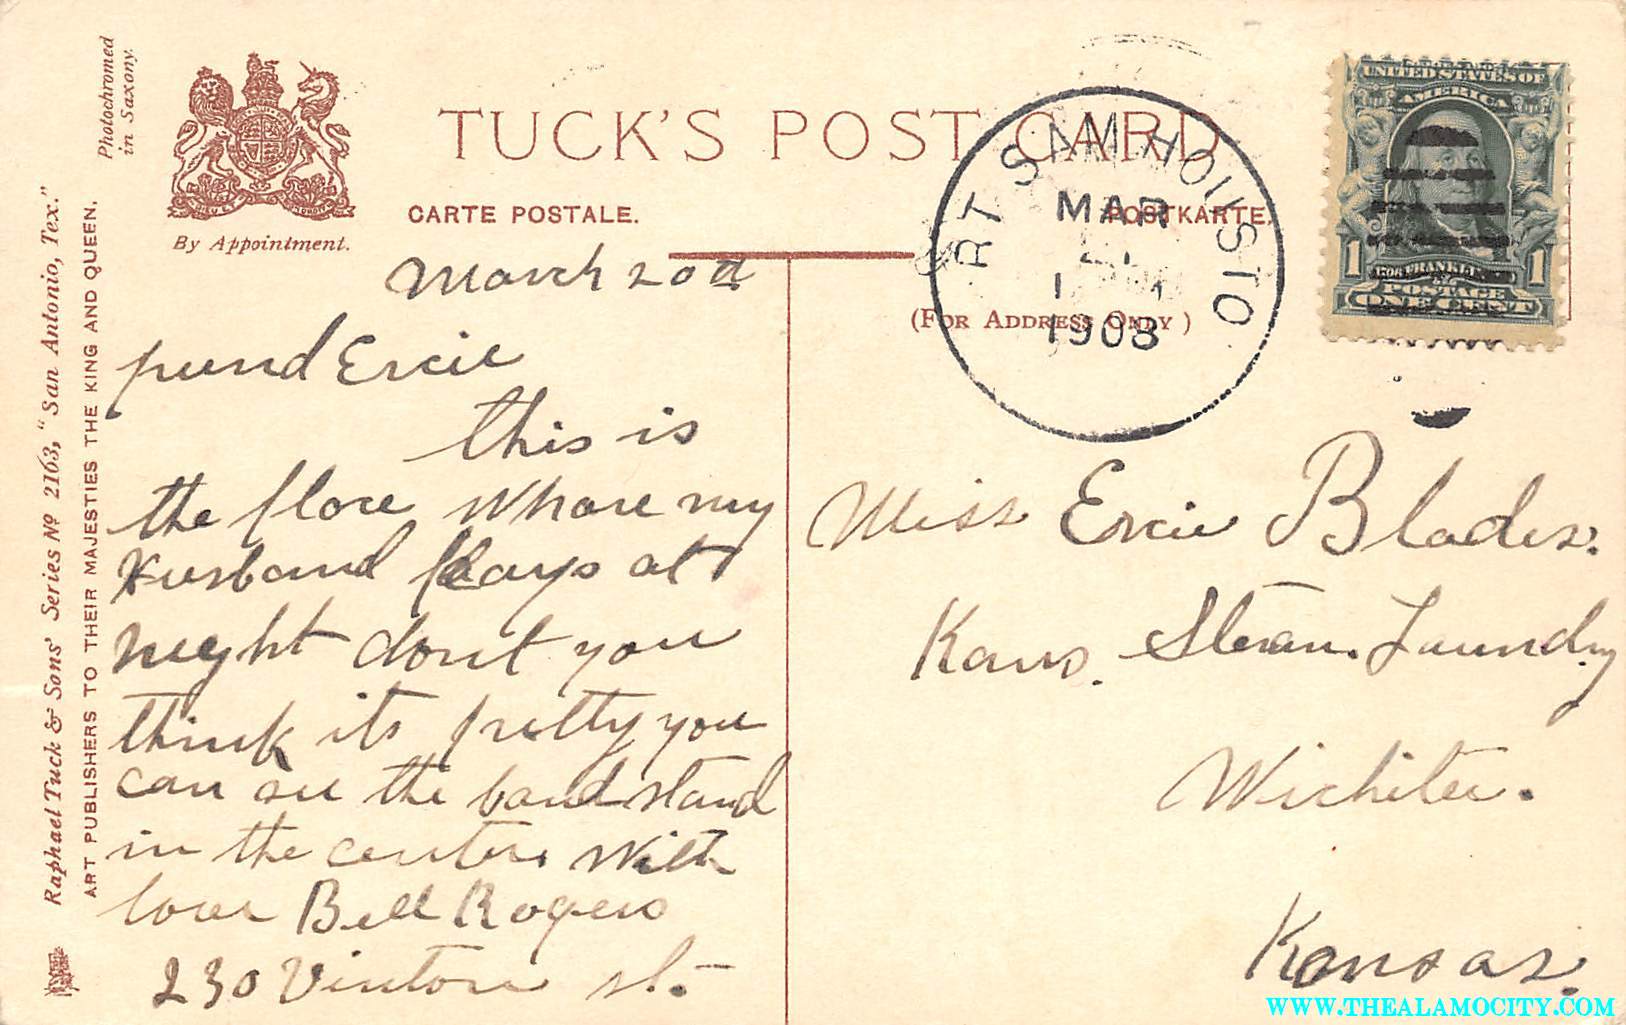 Photochromed
in Saxony.
By Appointment.
TUCK'S POST CARD
CARTE POSTALE.
POSTKARTE.
(FOR ADDRESS ONLY)
RT SAM HOUSTO
MAR
1908
UNITED STATES OF
AMERICA
1
1
FRANKLIN
POSTAGE
ONE CENT
Raphael Tuck & Sons' Series Nº 2163, "San Antonio, Tex."
ART PUBLISHERS TO THEIR MAJESTIES THE KING AND QUEEN.
March 20
Ercie
this is
the place whare my
Husband plays at
night dont you
think its pretty you
can see the band stand
in the center. With
love Bell Rogers
230 Vinton st.
Miss Ercie Blades.
Kans. Steam Laundry
Wichita.
Kansas.
WWW.THEALAMOCITY.COM